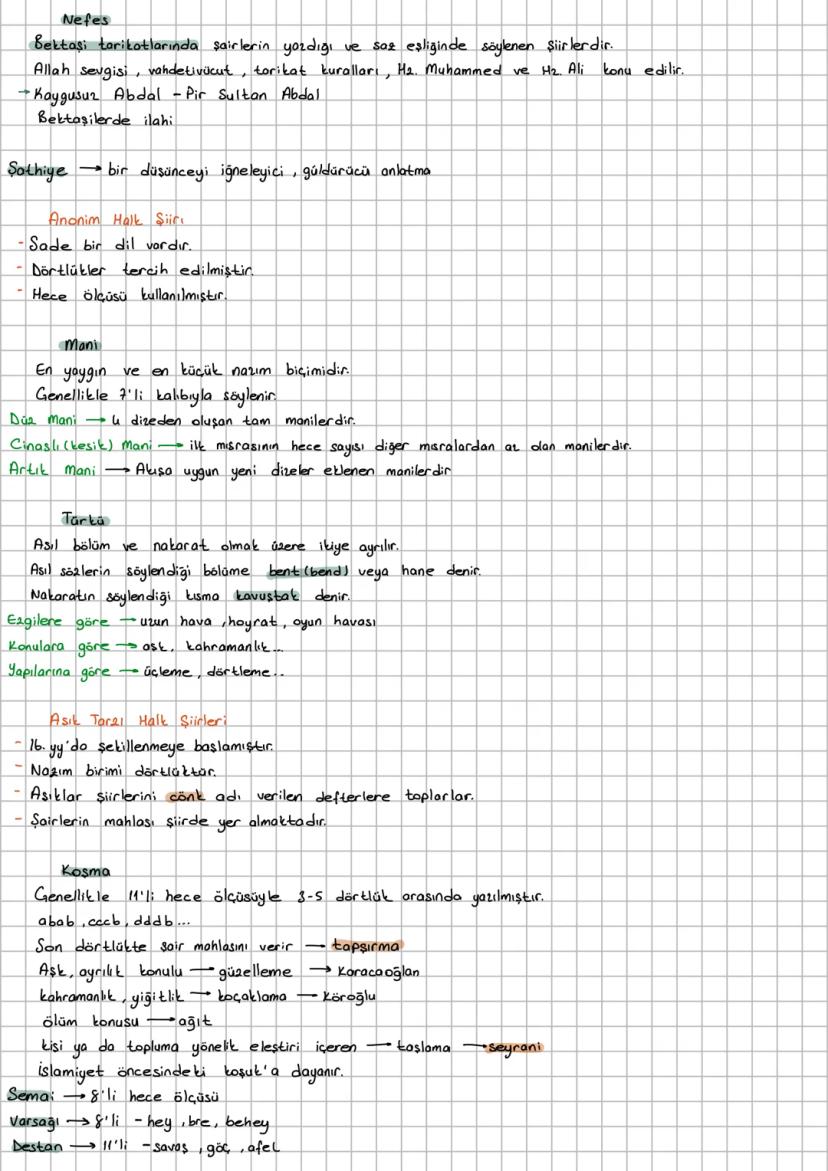 Nefes
Bektaşi tarikatlarında şairlerin yazdığı ve saz eşliğinde söylenen şiirlerdir.
Allah sevgisi, vahdetivücut, tarikat kuralları, Hz. Muhammed ve Hz. Ali konu edilir.
→ Kaygusuz Abdal - Pir Sultan Abdal
Bektaşilerde ilahi
Şathiye → bir düşünceyi iğneleyici, güldürücü anlatma
Anonim Halk Şiiri
- Sade bir dil vardır.
- Dörtlükler tercih edilmiştir.
- Hece ölçüsü kullanılmıştır.
Mani
En yaygın ve en küçük nazım biçimidir.
Genellikle 7'li kalıbıyla söylenir.
Düz Mani → 4 dizeden oluşan tam manilerdir.
Cinaslı (kesik) Mani → ilk mısrasının hece sayısı diğer mısralardan az olan manilerdir.
Artık Mani → Akışa uygun yeni dizeler eklenen manilerdir
Türkü
Asıl bölüm ve nakarat olmak üzere ikiye ayrılır.
Asıl sözlerin söylendiği bölüme bent (bend) veya hane denir.
Nakaratın söylendiği kısma kavuştak denir.
Ezgilere göre → uzun hava, hoyrat, oyun havası
Konulara göre → aşk, kahramanlık...
Yapılarına göre → üçleme, dörtleme..
Aşık Tarzı Halk Şiirleri
- 16. yy'da şekillenmeye başlamıştır.
- Nazım birimi dörtlüktür.
- Aşıklar şiirlerini cönk adı verilen defterlere toplarlar.
- Şairlerin mahlası şiirde yer almaktadır.
Koşma
Genellikle 11'li hece ölçüsüyle 3-5 dörtlük arasında yazılmıştır.
abab, cccb, dddb...
Son dörtlükte şair mahlasını verir → tapşırma
Aşk, ayrılık konulu → güzelleme → Karacaoğlan
kahramanlık, yiğitlik → koçaklama → Köroğlu
ölüm konusu → ağıt
kişi ya da topluma yönelik eleştiri içeren → taşlama → seyrani
İslamiyet öncesindeki koşuk'a dayanır.
Semai → 8'li hece ölçüsü
Varsağı → 8'li - hey, bre, behey
Destan → 11'li - savaş, göç, afet